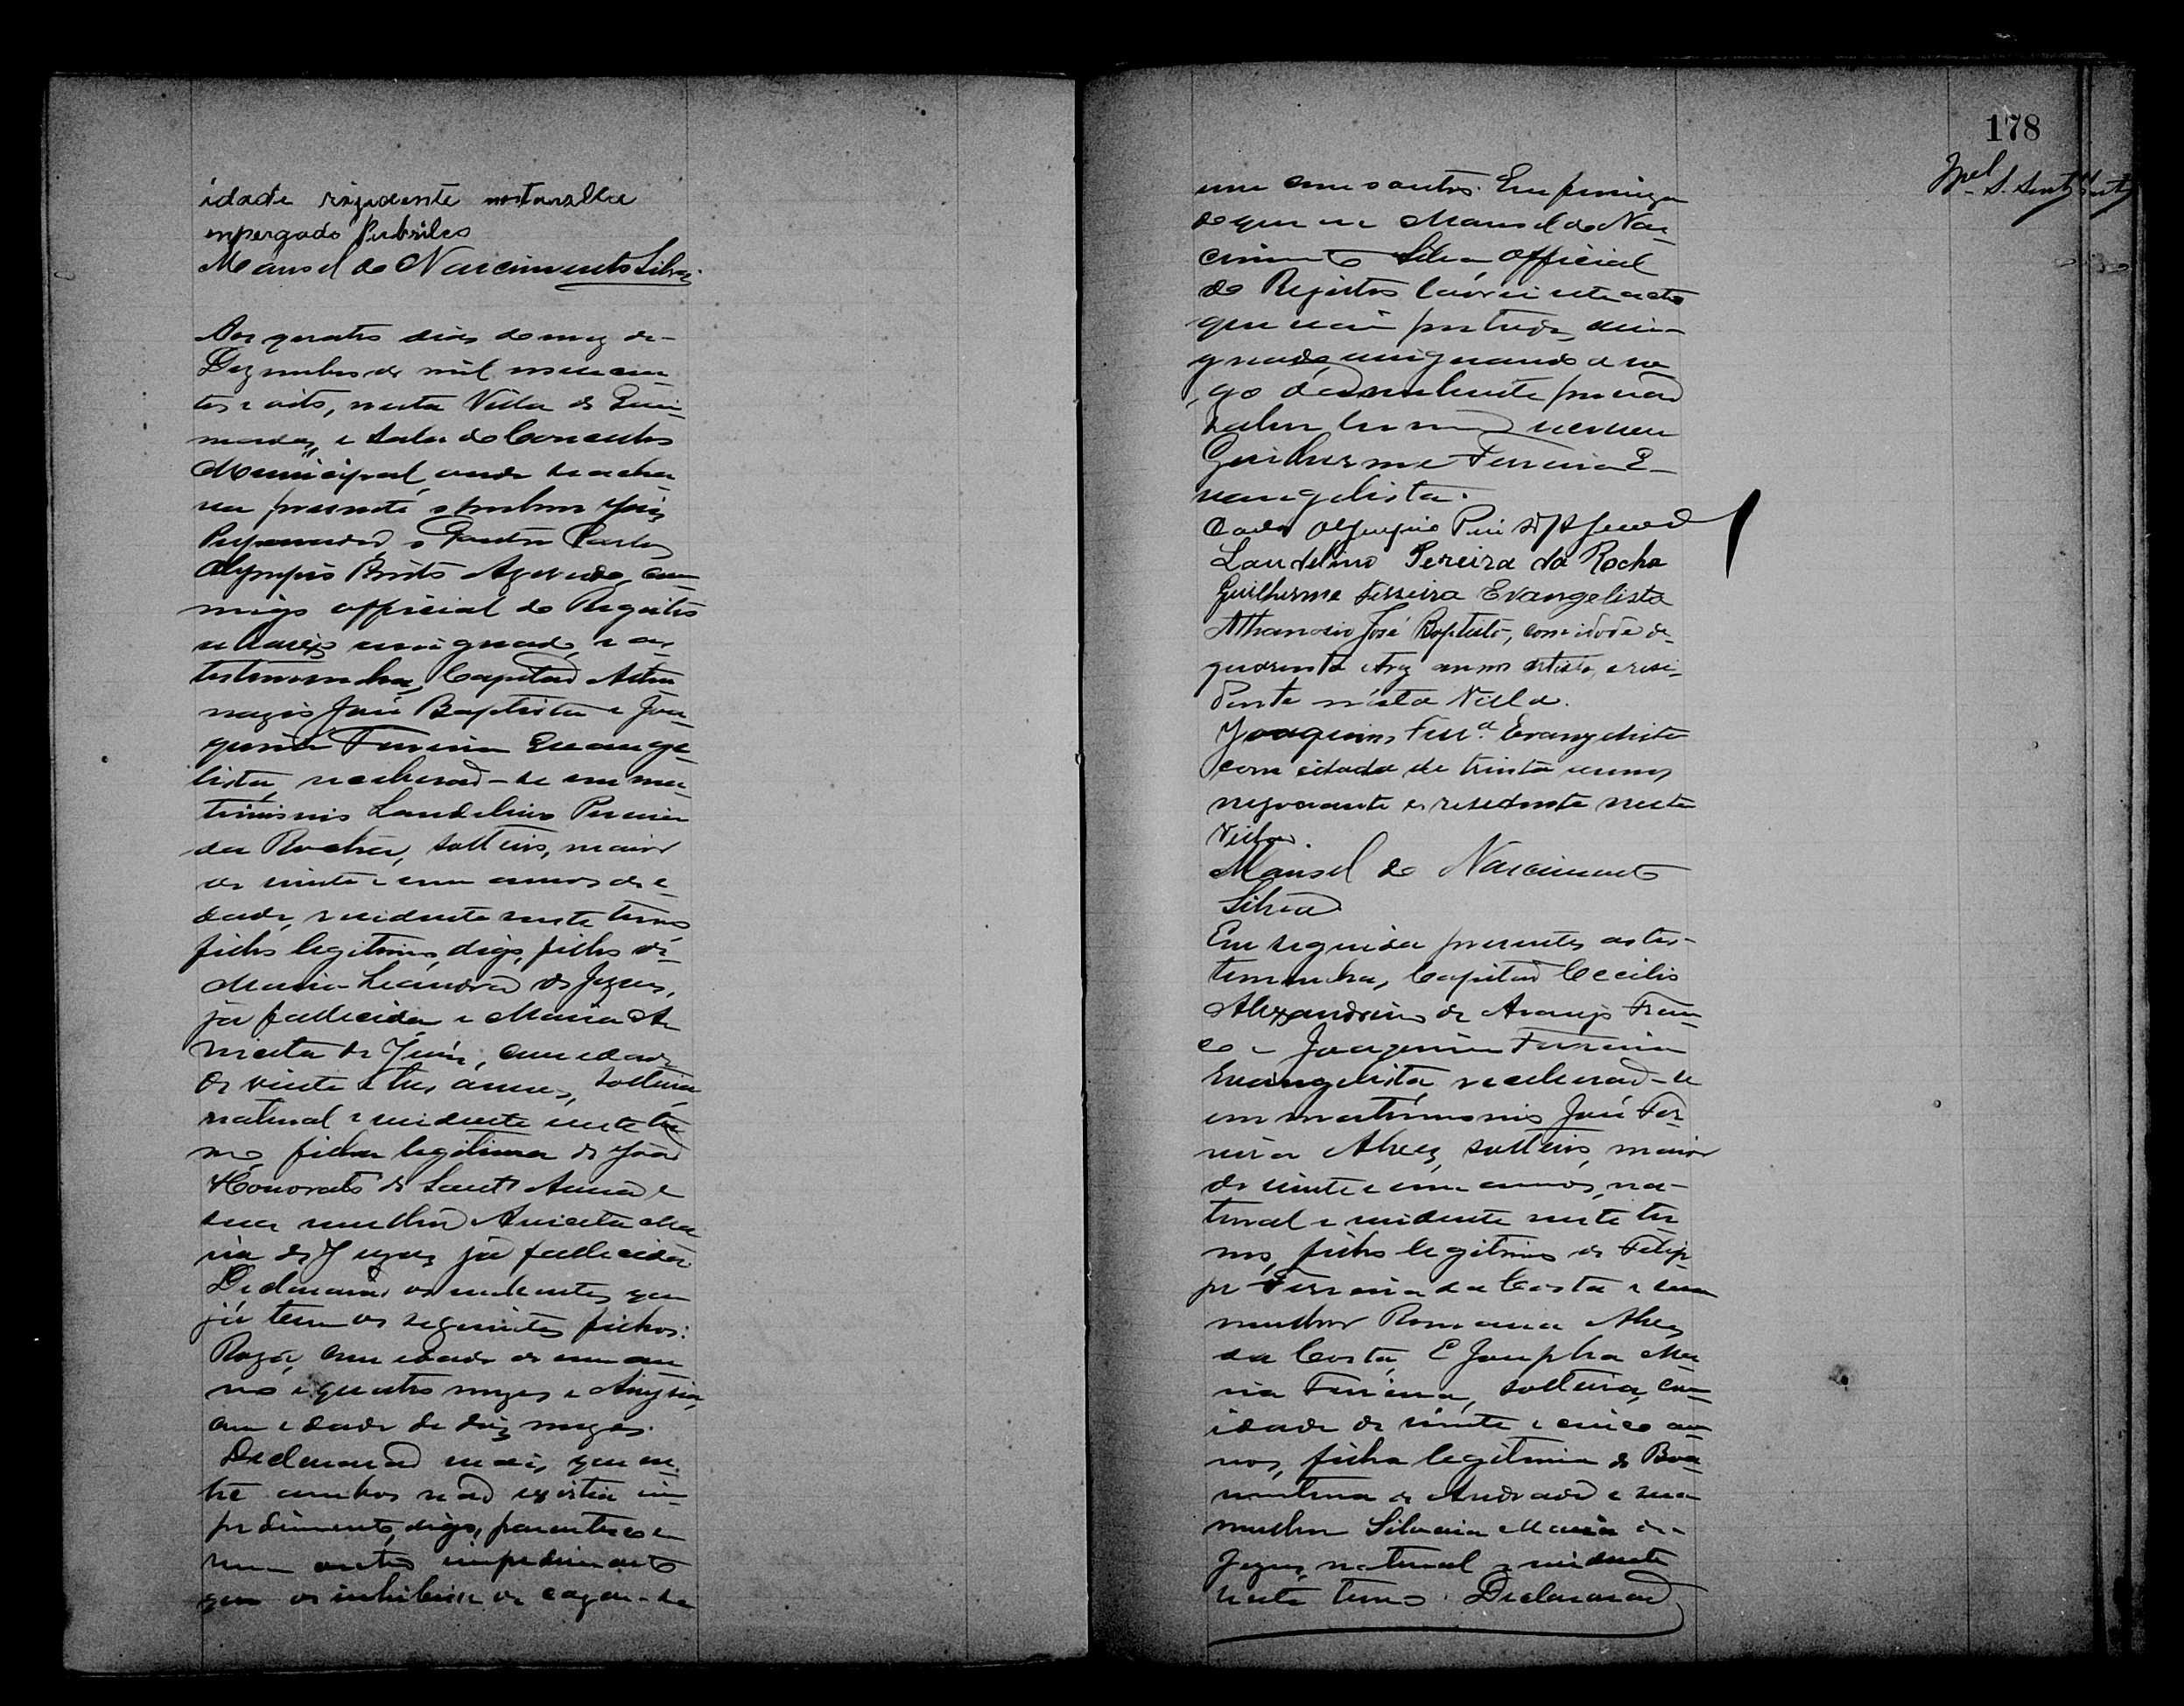 idade rezidente nestavilla
enpergado Pubrilco
Manoel do Nascimento Silva.
Aos quatro dias do mez de
Dezembro de mil novecen
tos e oito, nesta Villa de Quei
madas, e Sala do Conselho
Municipal, onde se acha
va presente o senhor Juiz
Preparador, o Doutor Carlos
Olympio Britto Azevedo, com
migo official do Registro
abaixo assignado, e as
testimunhas, Capitão Atha
nazio José Baptista e Joa
quim Ferreira Evange
lista, receberaõ-se em ma
trimonio Landelino Pereira
da Rocha, solteiro, maior
de vinte e um annos de i
dade, residente neste termo
filho legitimo, digo, filho de
Maria Leandra de Jezus,
já fallecida e Maria A
nicêta de Jesús, com edade
de vinte e tres annos, solteira
natural e residente neste ter
mo, filha legitima de João
Honorato de Sant'Anna e
sua mulher Aniceta Ma
ria de Jezus já fallecida
Declararaõ os nubentes que
já tem os seguintes filhos:
Roza, com edade de um an
no e quatro mezes e
com edade de dois mezes.
Declararaõ mais, que en
tre ambos não existia im
pedimento, digo, parentesco e
nem outro impedimento
que os inhibisse de cazar-se
178
um com o outro. Em firmeza
do que eu Manoel do Nas
cimento Silva Official
do Registro lavrei este acto
que vai por todos assi
gnado, assignando a ro
go da nubente por não
saber ler nem escrever
Guilherme Ferreira E
vangelista.
Carlos Olympio
Landelino Pereira da Rocha
Guilherme Ferreira Evangelista
Athanasio José Baptista, com idade de
quarenta e trez annos artista, e resi
dente nésta Villa.
Joaquim Ferr.ª Evangelista
com eidade de trinta annos
negociante e resedente nesta
Villa.
Manoel do Nascimento
Silva
Em seguida presentes as tes
temunhas, Capitão Cecilio
Alexandrino de Araujo Fran
co e Joaquim Ferreira
Evangelista, receberaõ-se
em matrimonio José Fer
reira Alves, solteiro, maior
de vinte e um annos, na-
tural e residente neste ter
mo, filho legitimo de Felip
pe Ferreira da Costa e sua
mulher Romana Alves
da Costa, E Josepha Ma
ria Ferreira, solteira, com
idade de vinte e cinco an
nos, filha legitima de Boa
ventura de Andrade e sua
mulher Silvana Maria de
Jezus, natural e residente
neste termo. Declararaõ